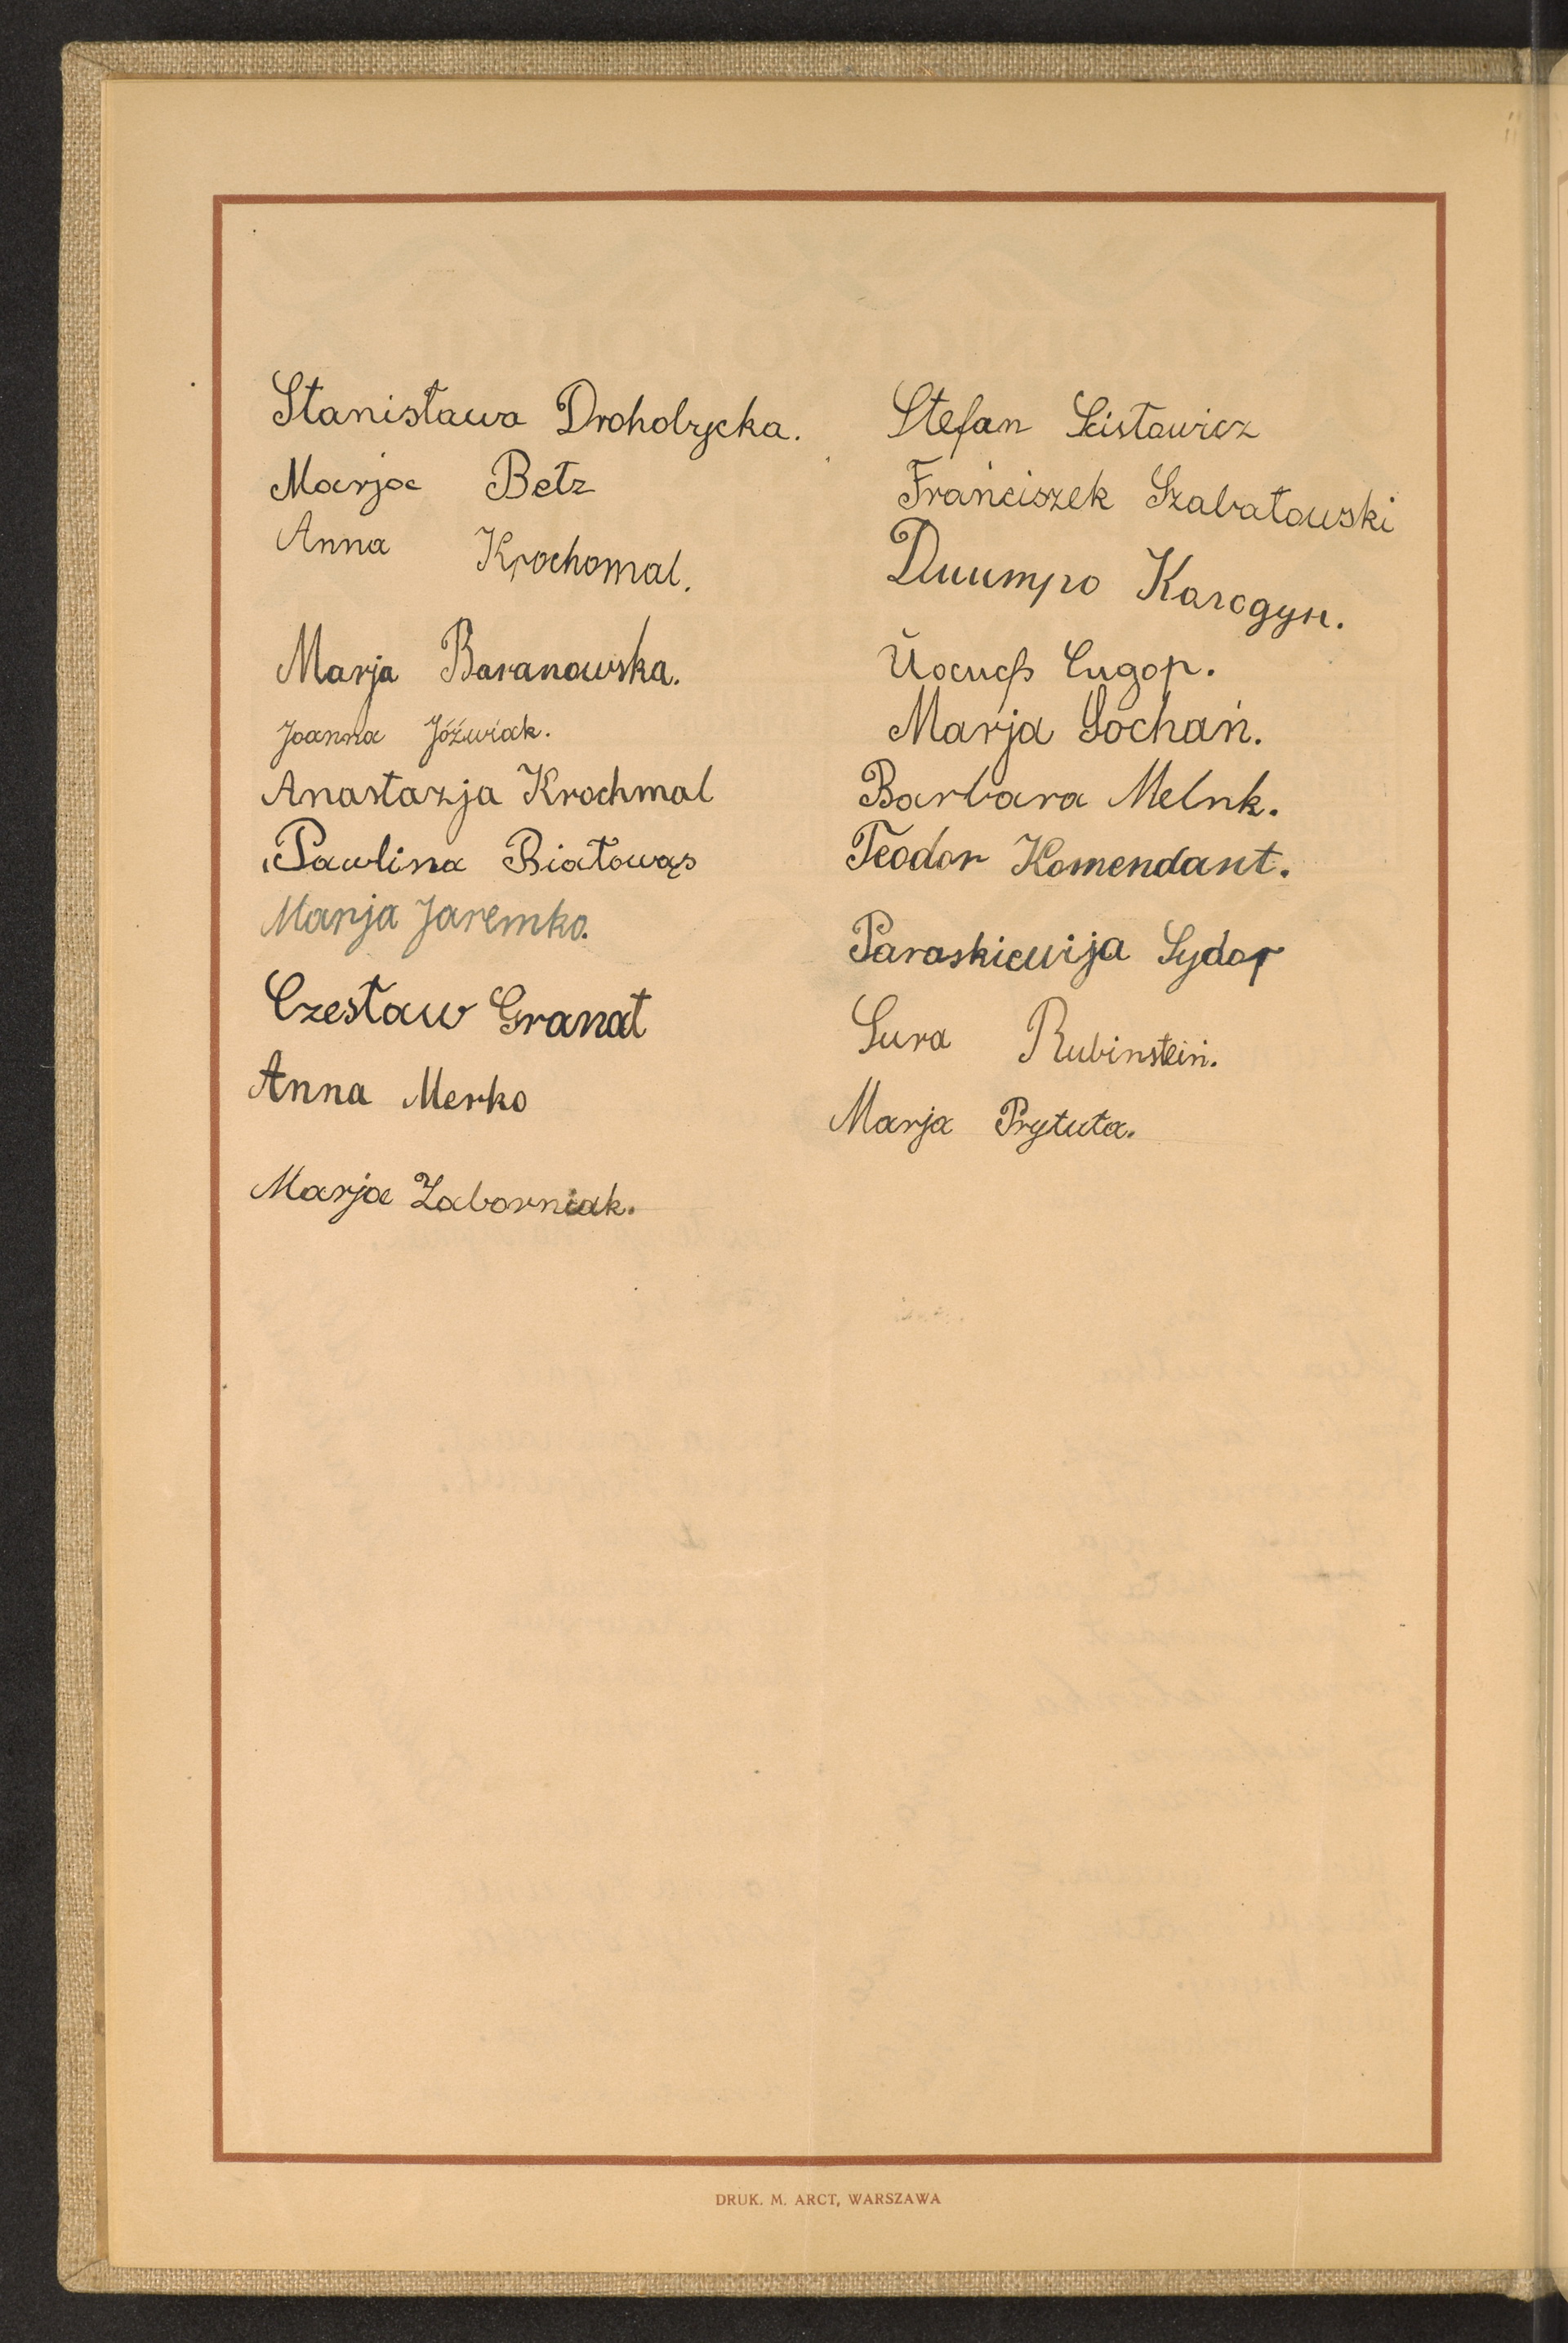 Stanisława Drohobycka.
Marja Bełz
Anna Krochomal.
Marja Baranowska.
Joanna Jóźwiak.
Anastazja Krochmal
Pawlina Białowąs
Marja Jaremko.
Czesław Granat
Anna Merko
Marja Zaborniak.
Stefan Scisławicz
Franciszek Szabatowski
Дмитро
Йосиф Сидор.
Marja Sochań.
Barbara Melnk.
Teodor Komendant.
Paraskiewija Sydor
Sura Rubinstein.
Marja Prytuła.
DRUK. M. ARCT, WARSZAWA